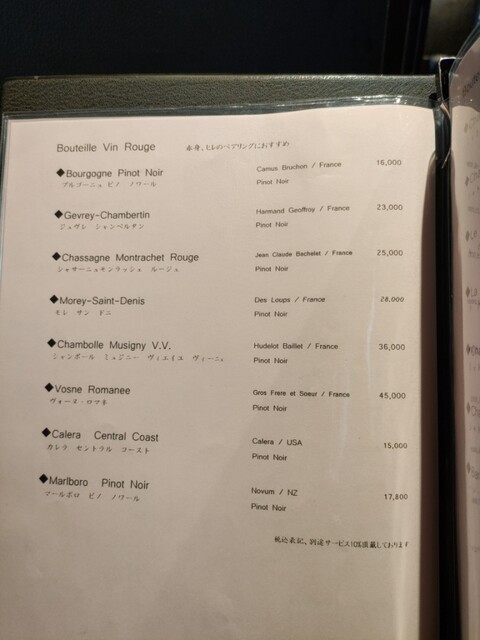 Bouteille Vin Rouge 赤身、ヒレのペアリングにおすすめ
◆Bourgogne Pinot Noir Camus Bruchon / France 16,000
ブルゴーニュ ピノ ノワール Pinot Noir
◆Gevrey-Chambertin Harmand Geoffroy / France 23,000
ジュヴレ シャンベルタン Pinot Noir
◆Chassagne Montrachet Rouge Jean Claude Bachelet / France 25,000
シャサーニュモンラッシェ ルージュ Pinot Noir
◆Morey-Saint-Denis Des Loups / France 28,000
モレ サン ドニ Pinot Noir
◆Chambolle Musigny V.V. Hudelot Baillet / France 36,000
シャンボール ミュジニー ヴィエイユ ヴィーニュ Pinot Noir
◆Vosne Romanee Gros Frere et Soeur / France 45,000
ヴォーヌ・ロマネ Pinot Noir
◆Calera Central Coast Calera / USA 15,000
カレラ セントラル コースト Pinot Noir
◆Marlboro Pinot Noir Novum / NZ 17,800
マールボロ ピノ ノワール Pinot Noir
税込表記、別途サービス10%頂戴しております